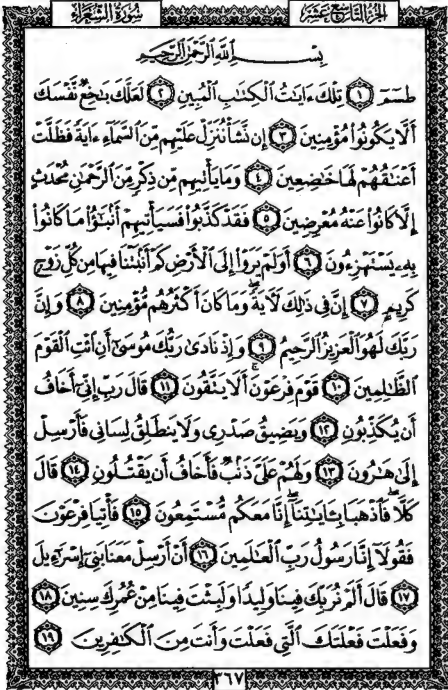 الجزء التاسع عشر
سورة الشعراء
بِسْمِ اللَّهِ الرَّحْمَٰنِ الرَّحِيمِ
طسٓمٓ ١ تِلْكَ ءَايَٰتُ الْكِتَٰبِ الْمُبِينِ ٢ لَعَلَّكَ بَٰخِعٌ نَّفْسَكَ
أَلَّا يَكُونُوا۟ مُؤْمِنِينَ ٣ إِن نَّشَأْ نُنَزِّلْ عَلَيْهِم مِّنَ السَّمَآءِ ءَايَةً فَظَلَّتْ
أَعْنَٰقُهُمْ لَهَا خَٰضِعِينَ ٤ وَمَا يَأْتِيهِم مِّن ذِكْرٍ مِّنَ الرَّحْمَٰنِ مُحْدَثٍ
إِلَّا كَانُوا۟ عَنْهُ مُعْرِضِينَ ٥ فَقَدْ كَذَّبُوا۟ فَسَيَأْتِيهِمْ أَنۢبَٰٓؤُا۟ مَا كَانُوا۟
بِهِۦ يَسْتَهْزِءُونَ ٦ أَوَلَمْ يَرَوْا۟ إِلَى الْأَرْضِ كَمْ أَنۢبَتْنَا فِيهَا مِن كُلِّ زَوْجٍ
كَرِيمٍ ٧ إِنَّ فِى ذَٰلِكَ لَءَايَةً ۖ وَمَا كَانَ أَكْثَرُهُم مُّؤْمِنِينَ ٨ وَإِنَّ
رَبَّكَ لَهُوَ الْعَزِيزُ الرَّحِيمُ ٩ وَإِذْ نَادَىٰ رَبُّكَ مُوسَىٰٓ أَنِ ائْتِ الْقَوْمَ
الظَّٰلِمِينَ ١٠ قَوْمَ فِرْعَوْنَ ۚ أَلَا يَتَّقُونَ ١١ قَالَ رَبِّ إِنِّىٓ أَخَافُ
أَن يُكَذِّبُونِ ١٢ وَيَضِيقُ صَدْرِى وَلَا يَنطَلِقُ لِسَانِى فَأَرْسِلْ
إِلَىٰ هَٰرُونَ ١٣ وَلَهُمْ عَلَىَّ ذَنۢبٌ فَأَخَافُ أَن يَقْتُلُونِ ١٤ قَالَ
كَلَّا ۖ فَاذْهَبَا بِـَٔايَٰتِنَآ ۖ إِنَّا مَعَكُم مُّسْتَمِعُونَ ١٥ فَأْتِيَا فِرْعَوْنَ
فَقُولَآ إِنَّا رَسُولُ رَبِّ الْعَٰلَمِينَ ١٦ أَنْ أَرْسِلْ مَعَنَا بَنِىٓ إِسْرَٰٓءِيلَ
١٧ قَالَ أَلَمْ نُرَبِّكَ فِينَا وَلِيدًا وَلَبِثْتَ فِينَا مِنْ عُمُرِكَ سِنِينَ ١٨
وَفَعَلْتَ فَعْلَتَكَ الَّتِى فَعَلْتَ وَأَنتَ مِنَ الْكَٰفِرِينَ ١٩
٣٦٧